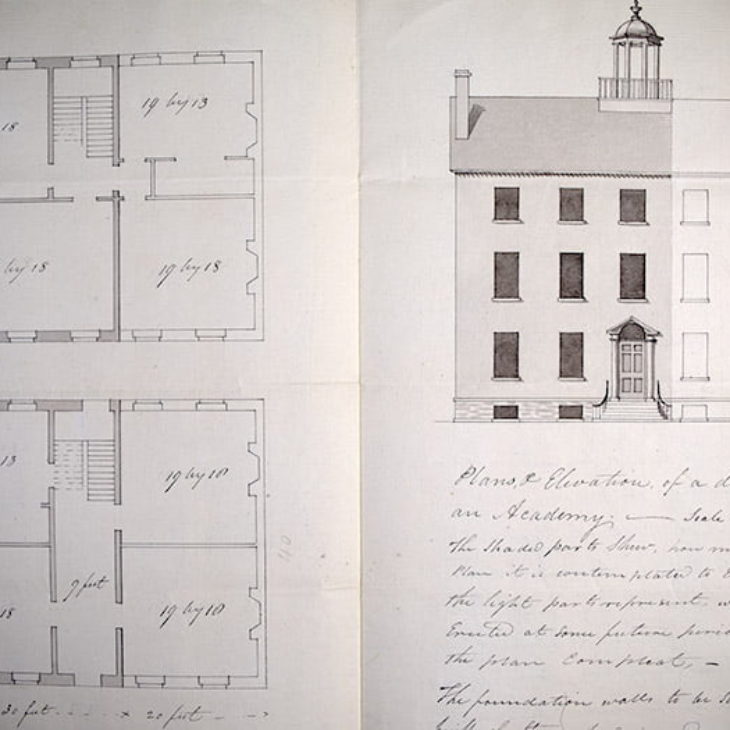 18
19 by 13
by 18
19 by 18
13
19 by 18
9 feet
18
19 by 18
30 feet
20 feet
40
Plans, & Elevation, of a d
an Academy, — Scale
The Shaded parts Shew, how m
Plan it is contemplated to
the light parts represent, w
Erected at some future perio
the plan Compleat, —
The foundation walls to be